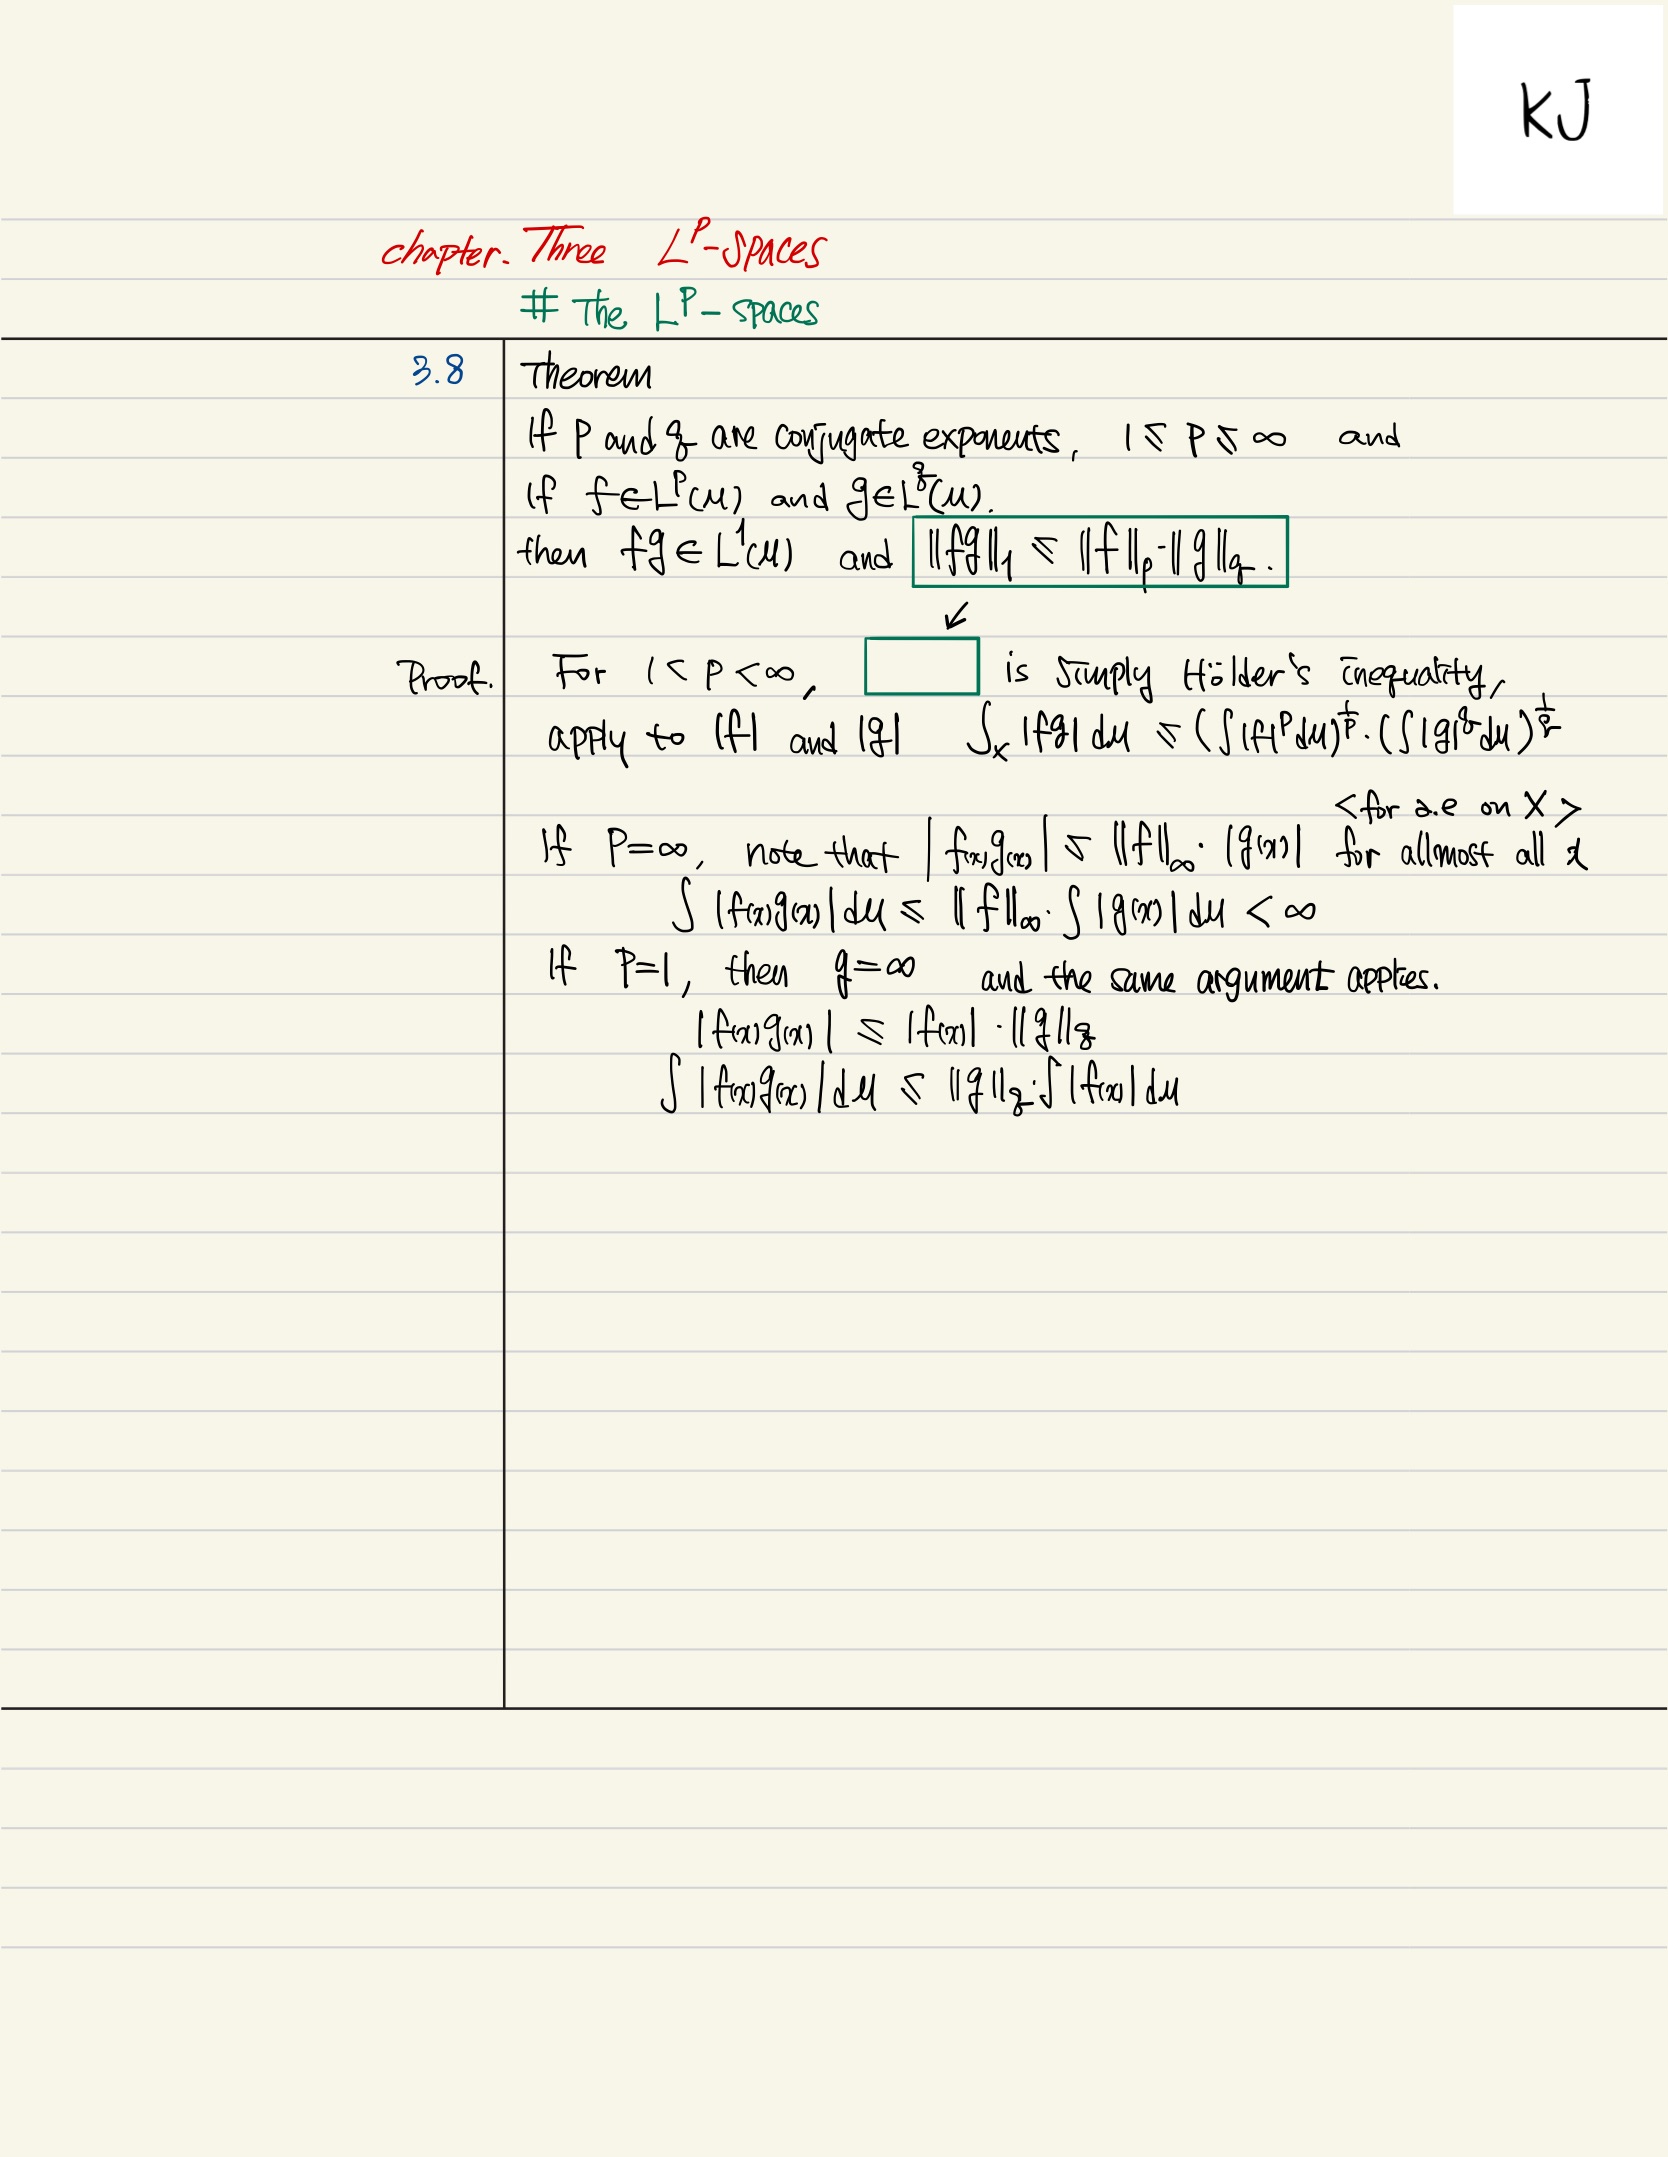 KJ
chapter. Three L^p-spaces
# The L^p-spaces
3.8 Theorem
If p and q are conjugate exponents, 1 ≤ p ≤ ∞ and
if f∈L^p(μ) and g∈L^q(μ).
then fg ∈ L^1(μ) and ‖fg‖_1 ≤ ‖f‖_p·‖g‖_q.
↙
Proof. For 1 < p < ∞, □ is simply Hölder's inequality,
apply to |f| and |g| ∫_X |fg| dμ ≤ (∫|f|^p dμ)^{1/p}·(∫|g|^q dμ)^{1/q}
<for a.e on X>
If p=∞, note that |f(x)g(x)| ≤ ‖f‖_∞·|g(x)| for allmost all x
∫|f(x)g(x)|dμ ≤ ‖f‖_∞·∫|g(x)|dμ < ∞
If p=1, then q=∞ and the same argument applies.
|f(x)g(x)| ≤ |f(x)|·‖g‖_q
∫|f(x)g(x)|dμ ≤ ‖g‖_q·∫|f(x)|dμ